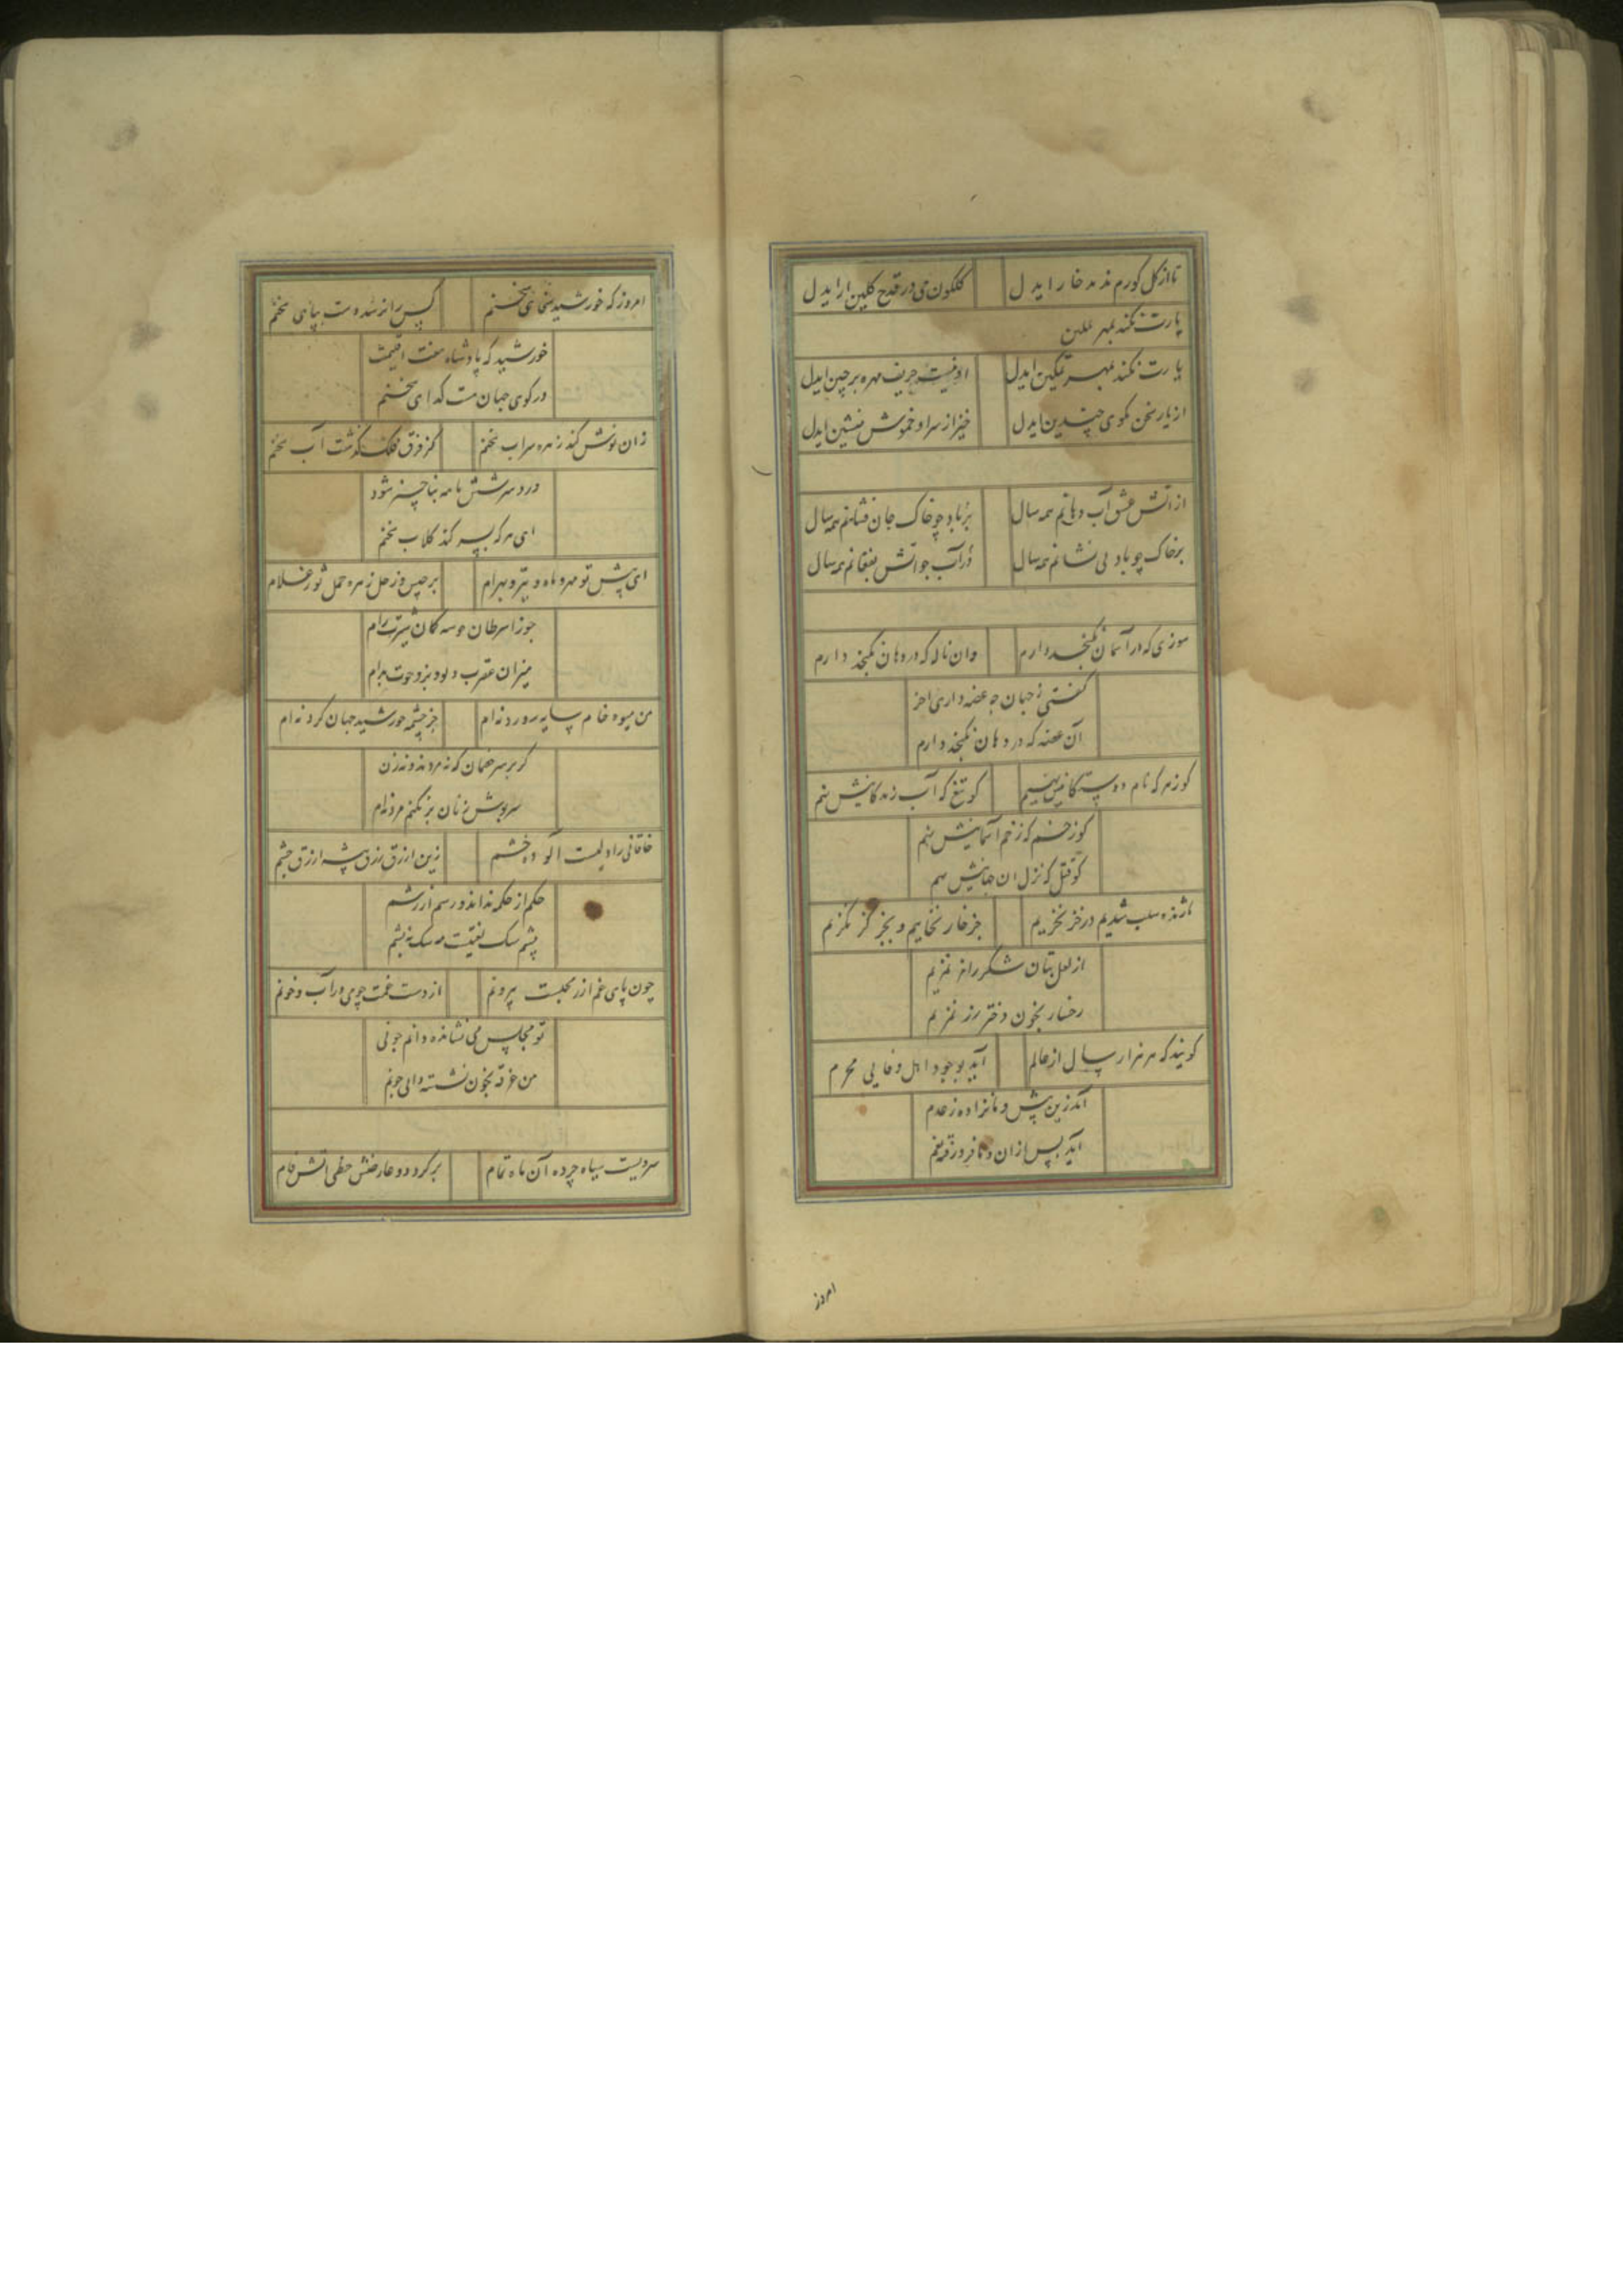 تا از گل گورم ندمد خار ایدل گلگون می در قدح گلین آر ایدل
یارت نکند بمهر تمکین
یارت نکند بمهر تمکین ایدل او نیست حریف مهره برچین ایدل
از یار سخن مگوی چندین ایدل خیز از سر او خموش بنشین ایدل
از آتش عشق آب دهانم همه سال بر باد چو خاک جان فشانم همه سال
بر خاک چو باد بی نشانم همه سال در آب چو آتش بفغانم همه سال
سوزی که در آسمان نگنجد دارم وان ناله که در دهان نگنجد دارم
گفتی ز جهان چه غصه داری آخر
آن غصه که در دهان نگنجد دارم
کو زهر که نام دوستکانیش نهم کو تیغ که آب زندگانیش نهم
کو زخم که زخم آسمانیش نهم
کو قتل که نزل آن جهانیش نهم
سلب شدیم در خز نخزیم جز خار نخاییم و بجز گز نگزیم
از لعل بتان شکر راز نمزیم
رخسار بخون دختر رز نمزیم
گویند که هر هزار سال از عالم آید بوجود اهل وفایی محرم
آمد زین پیش و ما نزاده ز عدم
آید پس از آن و ما فرو رفته بغم
امروز
امروز که خورشید سخنم کس را نرسد دست بپای سخنم
خورشید که پادشاه هفت اقلیمت
در کوی جهان مست گدای سخنم
زان نوش کند زهره سراب سخنم کز فرق فلک گذشت آب سخنم
درد سرشش مه بنا چیز شود
ای هر که بسر کند گلاب سخنم
ای پیش تو مهر و ماه و تیر و بهرام برجیس و زحل زهره حمل ثور غلام
جوزا سرطان خوسه کمان شیرت رام
میزان عقرب دلو بز و حوت بدام
من میوه خام سایه پرورد نه‌ام جز چشمه خورشید جهان گرد نه‌ام
گر بر سر خصمان که نه مردند و نه زن
سرپوش زنان بر نکنم مرد نه‌ام
خاقانی را دلیست آلوده خشم زین ازرق رزق پیشه ازرق چشم
حکم از حکمه نداند و رسم از رشم
پشم سگ نه پشم
چون پای غم از مجلست بیرونم از دست غمت چوی در آب و خونم
تو مجلس می نشانده دانم چونی
من غرقه بخون نشسته دانی چونم
سرویست سیاه چرده آن ماه تمام بر گرد دو عارضش خطی آتش فام